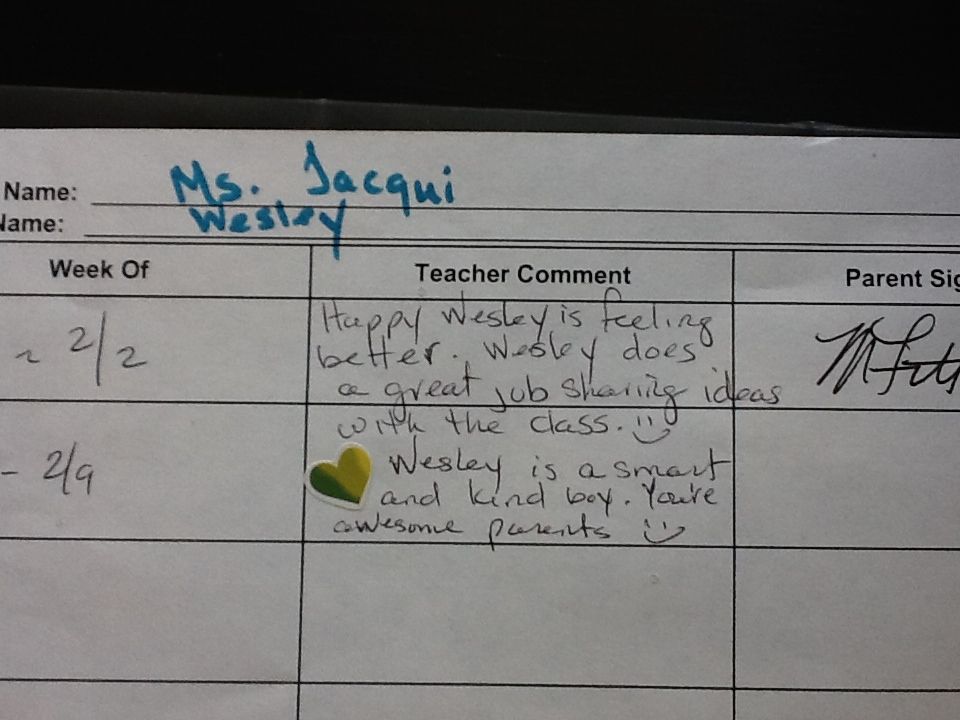 Name: Ms. Jacqui
Name: Wesley
Week Of
Teacher Comment
Parent Sig
~ 2/2
Happy Wesley is feeling
better. Wesley does
a great job sharing ideas
with the class.
- 2/9
Wesley is a smart
and kind boy. You're
awesome parents